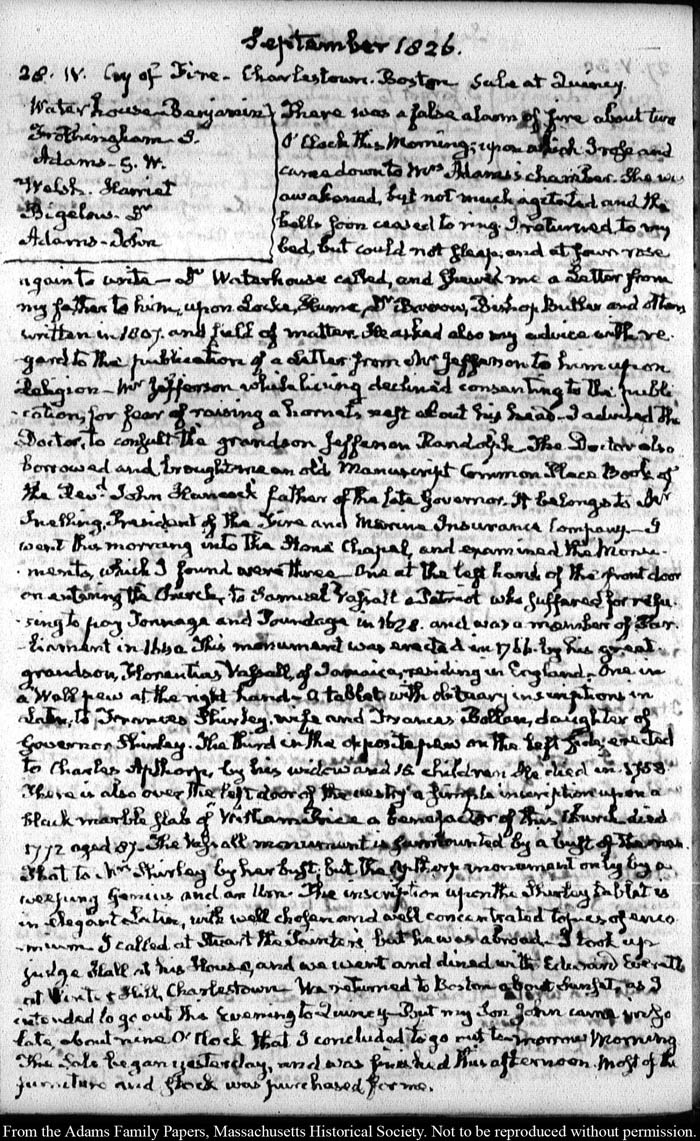 September 1826.
28. IV. Cry of Fire - Charlestown. Boston Sale at Quincy.
Waterhouse Benjamin
Frothingham I.
Adams. G. W.
Welsh. Harriet
Bigelow. Dr
Adams - John
There was a false alarm of fire about two
O'Clock this Morning; upon which I rose and
came down to Mrs Adams's chamber. She was
awakened, but not much agitated and the
bells soon ceased to ring. I returned to my
bed, but could not sleep; and at four rose
again to write - Dr Waterhouse called, and shewed me a Letter from
my father to him, upon Locke, Hume, Dr Bishop Butler and others
written in 1807. and full of matter. He asked also my advice with re-
gard to the publication of a Letter from Mr Jefferson to him upon
Religion - Mr Jefferson whilst living declined consenting to the publi-
cation, for fear of raising a hornets nest about his head - I advised the
Doctor, to consult the grandson Jefferson Randolph. The Doctor also
borrowed and brought me an old Manuscript Common Place Book of
the Revd. John Hancock father of the late Governor. It belongs to Mr
Snelling, President of the Fire and Marine Insurance Company - I
went this morning into the Stone Chapel, and examined the Monu-
ments, which I found were three - One at the left hand of the front door
on entering the Church, to Samuel Vassall a Patriot who suffered for refu-
sing to pay Tonnage and Poundage in 1628. and was a member of Par-
liament in 1640. This monument was erected in 1766. by his great
grandson, Florentius Vassall, of Jamaica, residing in England. One in
a Wall pew at the right hand - a tablet with obituary inscriptions in
Latin, to Frances Shirley, wife and Frances Bollan, daughter of
Governor Shirley. The third in the opposite pew on the left side; erected
to Charles Apthorp, by his widow and 15 children. He died in 1758
There is also over the left door of the vestry a simple inscription upon a
black marble slab of William Price a benefactor of this Church died
1772 aged 87. The Vassall monument is surmounted by a bust of the man
That to Mrs Shirley by her bust; but the Apthorp monument only by a
weeping Genius and an Urn. The inscription upon the Shirley tablet is
in elegant Latin, with well chosen and well concentrated topics of enco-
mium. I called at Stuart the Painter's but he was abroad - I took up
judge Hall at his House, and we went and dined with Edward Everett
at Winter Hill, Charlestown - We returned to Boston about Sunset, as I
intended to go out this Evening to Quincy - But my Son John came in so
late, about nine O'Clock that I concluded to go out to-morrow Morning
The Sale began yesterday, and was finished this afternoon. Most of the
furniture and stock was purchased for me.
From the Adams Family Papers, Massachusetts Historical Society. Not to be reproduced without permission